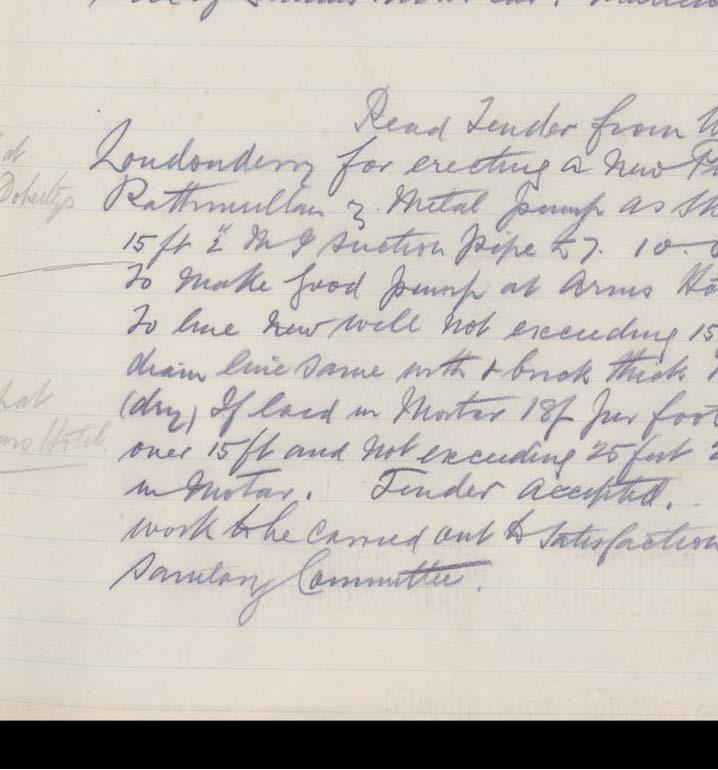 Read Tender from W
Londonderry for erecting a new P
at
Dohertys
Rathmullan & Metal pump as sh
15 ft 2" M I Suction pipe £7. 10. 0
To make good pump at Arms Ho
To line new well not exceeding 15
drain line same with brick thick
(dry) If laid in Mortar 18/- per foot
at
Arms Hotel.
over 15 ft and not exceeding 25 feet 2
in Mortar. Tender accepted.
work to be carried out to satisfaction
Sanitary Committee.